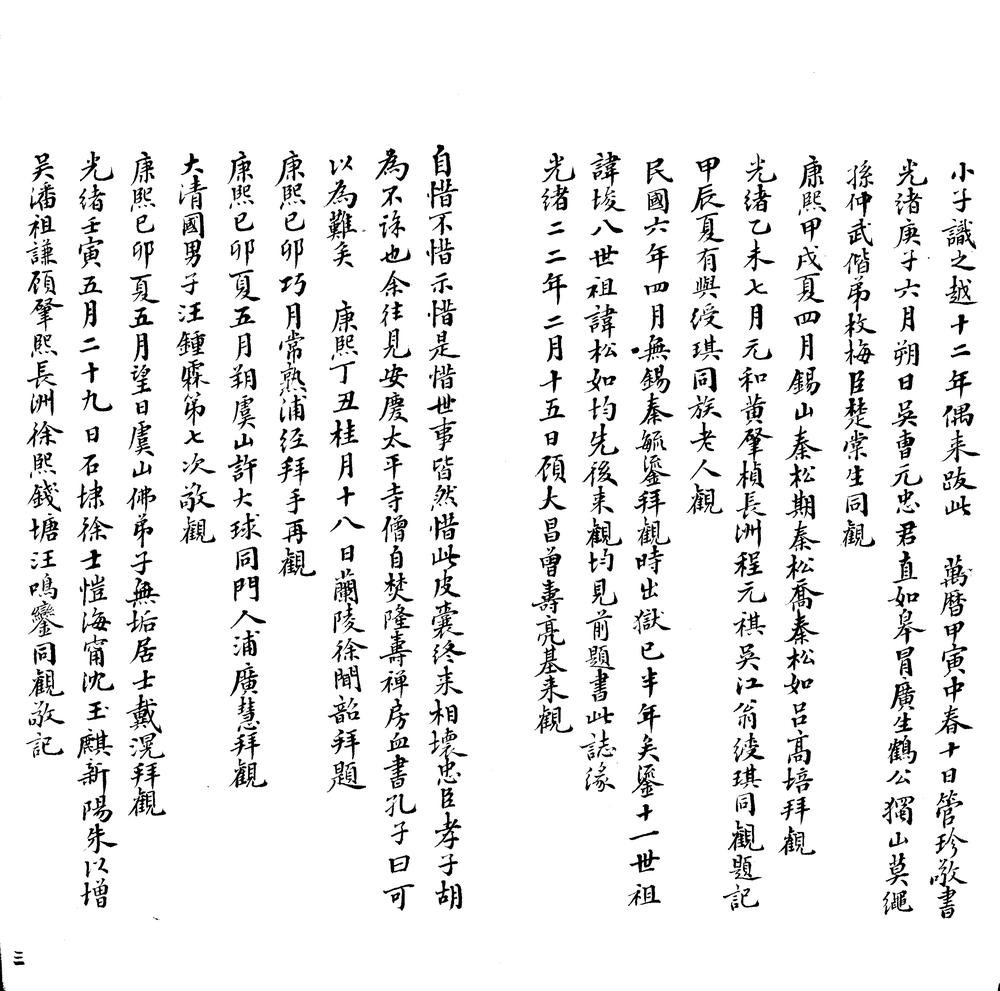 小子識之越十二年偶来跋此　萬曆甲寅中春十日管珍敬書
光緒庚子六月朔日吳曹元忠君直如皋冒廣生鶴公獨山莫繩
孫仲武偕弟枚梅臣楚棠生同觀
康熙甲戌夏四月錫山秦松期秦松喬秦松如呂高培拜觀
光緒乙未七月元和黄肇楨長洲程元祺吳江翁綬琪同觀題記
甲辰夏有與綬琪同族老人觀
民國六年四月無錫秦毓鎏拜觀時出獄已半年矣鎏十一世祖
諱埈八世祖諱松如均先後来觀均見前題書此誌緣
光緒二二年二月十五日顾大昌曾壽亮基来觀
自惜不惜示惜是惜世事皆然惜此皮囊终来相壞忠臣孝子胡
為不諒也余往見安慶太平寺僧自焚隆壽禅房血書孔子曰可
以為難矣　康熙丁丑桂月十八日蘭陵徐聞韶拜題
康熙己卯巧月常熟浦经拜手再觀
康熙己卯夏五月朔虞山許大球同門人浦廣慧拜觀
大清國男子汪鍾霖第七次敬觀
康熙己卯夏五月望日虞山佛弟子無垢居士戴滉拜觀
光緒壬寅五月二十九日石埭徐士愷海甯沈玉麒新陽朱以增
吴潘祖謙顾肇熙長洲徐熙錢塘汪鳴鑾同觀敬記
三